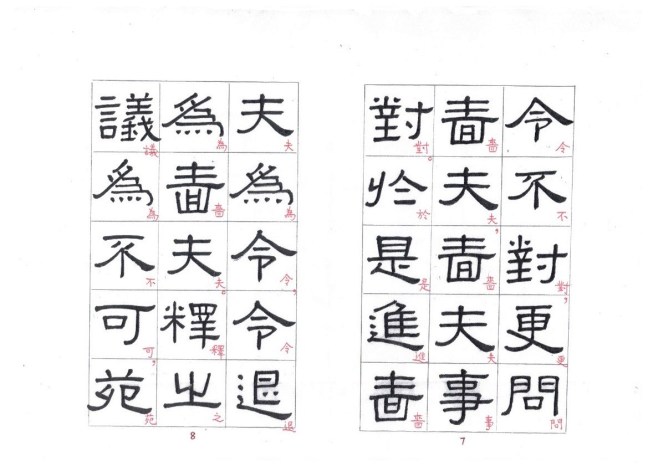 令不對更問
令不對，更問
嗇夫嗇夫事
嗇夫，嗇夫事
對於是進嗇
對。於是進嗇
7
夫為令令退
夫為令，令退
為嗇夫釋之
為嗇夫。釋之
議為不可苑
議為不可，苑
8